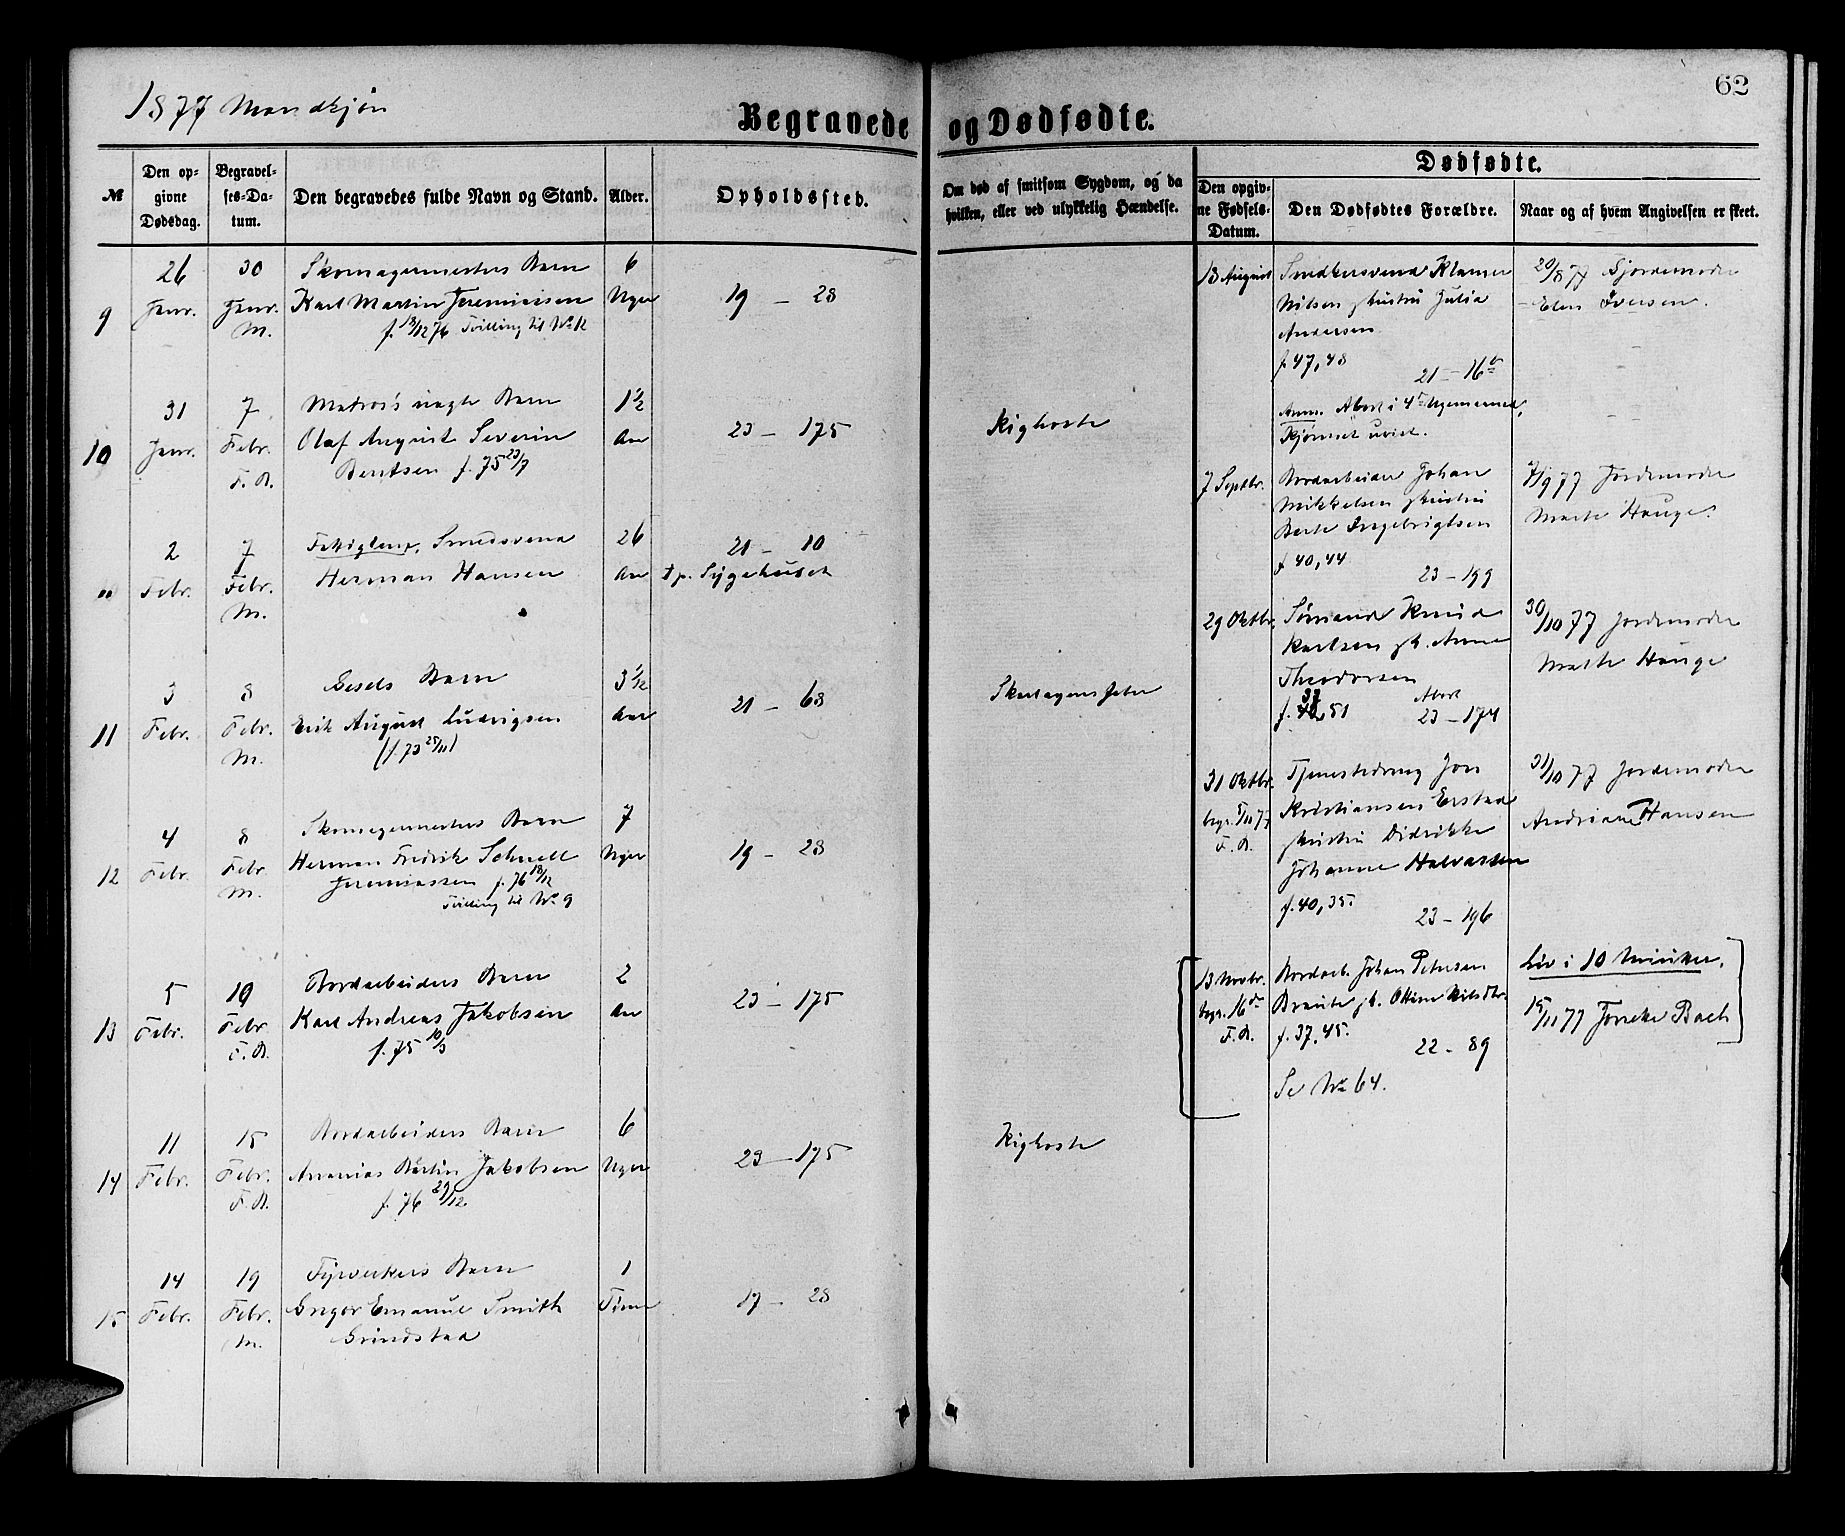 62
1877 Mandkjøn
Begravede og Dødfødte.
№
Den op-
givne
Dødsdag.
Begravel-
ses-Da-
tum.
Den begravedes fulde Navn og Stand.
Alder.
Opholdssted.
Om død af smitsom Sygdom, og da
hvilken, eller ved ulykkelig Hændelse.
Dødfødte.
Den opgiv-
ne Fødsels-
Datum.
Den Dødfødtes Forældre.
Naar og af hvem Angivelsen er skeet.
9
26
Janr.
30
Janr.
M.
Skomagermesters Barn
Karl Martin Jeremiasen
f. 18/12 76 Tvilling til No 12
6
Uger
19 – 28
10
31
Janr.
7
Febr.
F. A.
Matros's uægte Barn
Olaf August Severin
Bentsen f. 75 23/7
1 1/2
Aar
23 – 175
Kighoste
2
Febr.
7
Febr.
M.
Fattiglem, Smedsvend
Herman Hansen
26
Aar
21 – 10
Sygehuset
11
3
Febr.
8
Febr.
M.
Gesels Barn
Erik August Ludvigsen
(f. 73 25/11)
3 1/12
Aar
21 – 68
Skarlagensfeber
12
4
Febr.
8
Febr.
M.
Skomagermesters Barn
Herman Fredrik Schnell
Jeremiassen f. 76 18/12
Tvilling til No 9
7
Uger
19 – 28
13
5
Febr.
10
Febr.
F. A.
Bordarbeiders Barn
Karl Andreas Jakobsen
f. 75 10/3
2
Aar
23 – 175
14
11
Febr.
15
Febr.
F. A.
Bordarbeiders Barn
Ananias Bertin Jakobsen
f. 76 29/12
6
Uger
23 – 175
Kighoste
15
14
Febr.
19
Febr.
M.
Fyrverkers Barn
Gregor Emanuel Smith
Grindstad
1
Time
17 – 28
18 August
Snedkersvend Klaus
Nilsen og hustru Julia
Andersen
f. 47, 48
21 – 16b
Anm. Abort i 4de Ugemaaned,
Kjønnet uvist.
20/8 77 Gjordemoder
Elen Iversen.
7 Septbr.
Bordarbeider Johan
Mikkelsen og hustru
Berte Ingebrigtsen
f. 40, 44
23 – 199
7/9 77 Jordemoder
Marte Hauge.
29 Oktbr.
Sømand Knud
Karlsen og h. Anne
Theodorsen
f. 37, 51
Abort
23 – 174
30/10 77 Jordemoder
Marte Hauge
31 Oktbr.
begr. 5/11 77
F. A.
Tjenestedreng Jon
Kristiansen Erstad
og hustru Didrikke
Johanne Halvorsen
f. 40, 35.
23 – 196
31/10 77 Jordemoder
Andriane Hansen
13 Novbr.
begr. 16de
F. A.
Bordarb. Johan Petersen
Braute og h. Ottine Nilsdtr.
f. 37, 45.
22 – 89
Se No 64.
Liv i 10 Minuter.
15/11 77 Bach